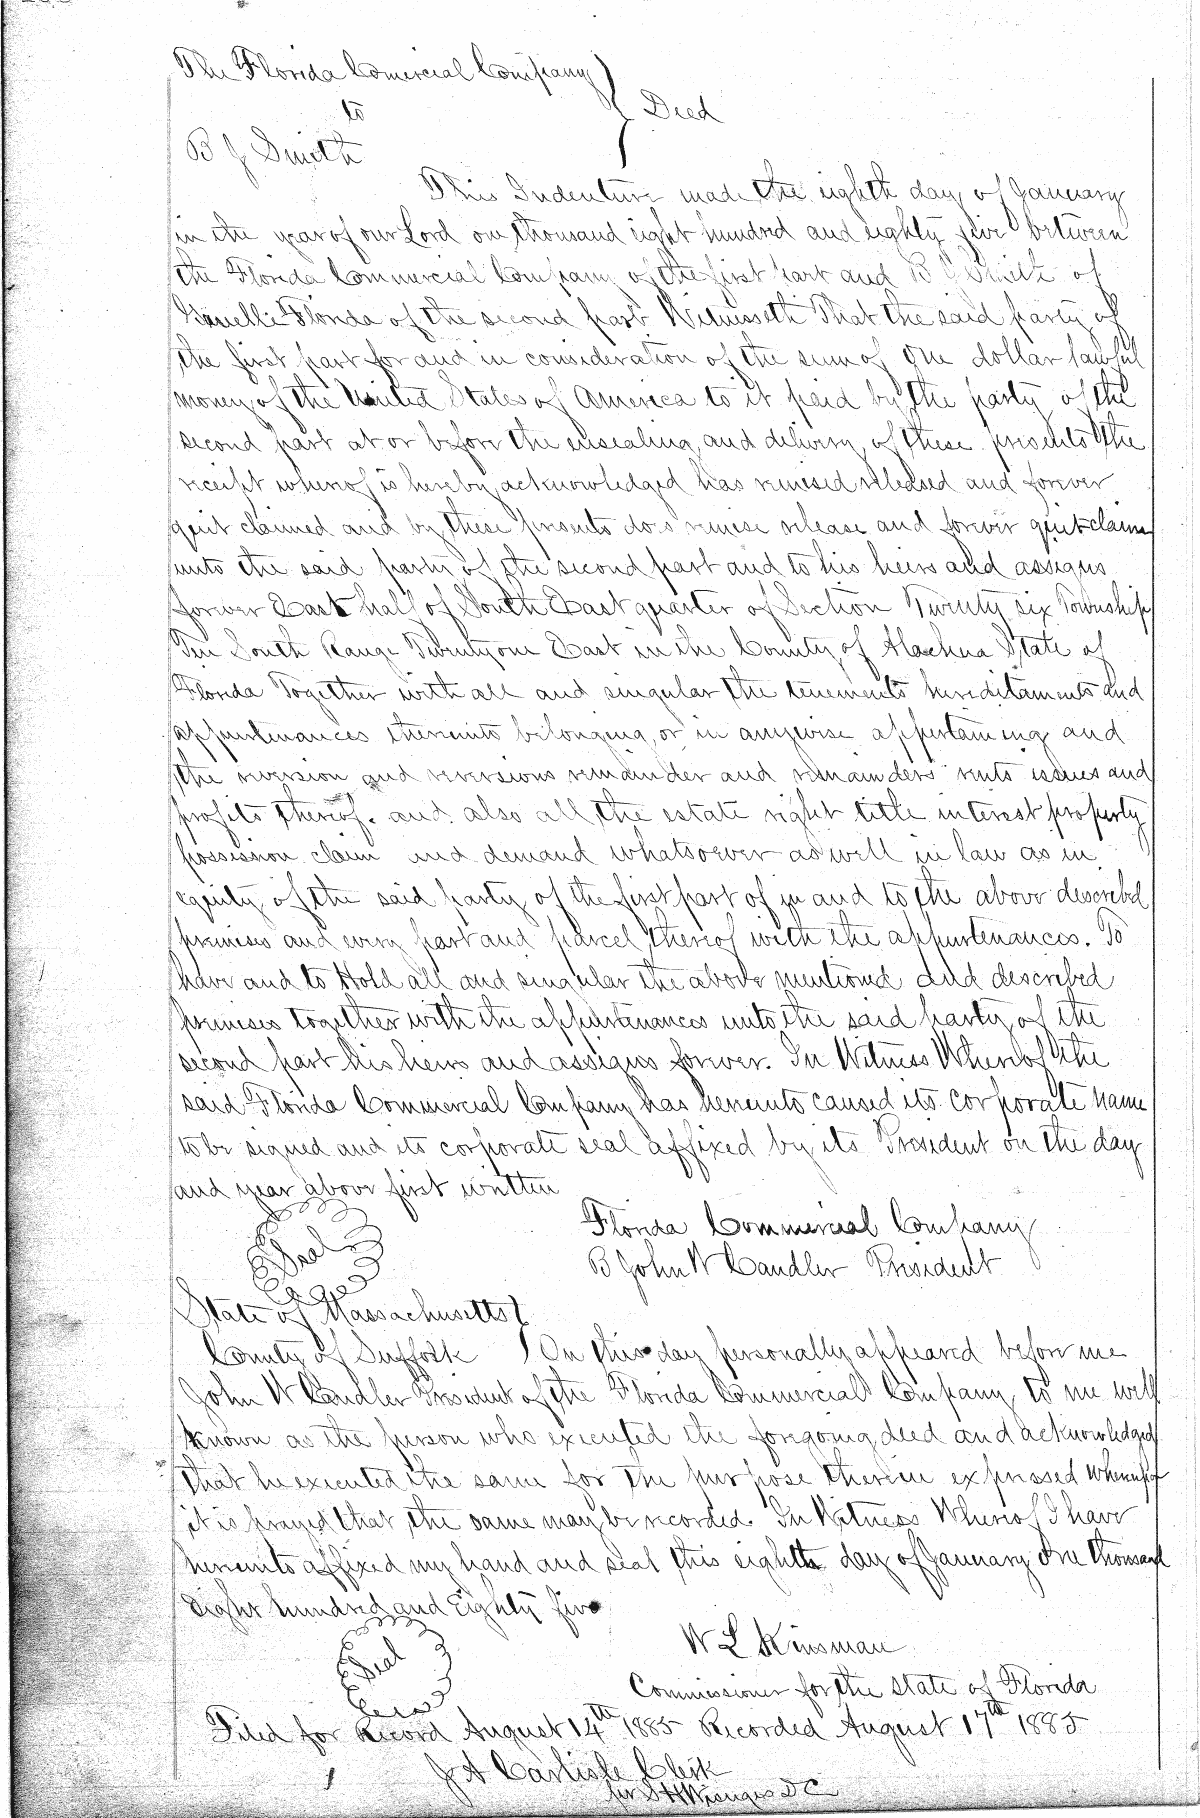 The Florida Comercial Company
to
Deed
B J Smith
This Indenture made the eighth day of January
in the year of our Lord one thousand eight hundred and eighty five between
the Florida Commercial Company of the first part and B J Smith of
Florida of the second part Witnesseth That the said party of
the first part for and in consideration of the sum of One dollar lawful
money of the United States of America to it paid by the party of the
second part at or before the ensealing and delivery of these presents the
receipt whereof is hereby acknowledged has remised released and forever
quit claimed and by these presents does remise release and forever quit claim
unto the said party of the second part and to his heirs and assigns
forever East half of South East quarter of Section Twenty six Township
Ten South Range Twenty one East in the County of Alachua State of
Florida Together with all and singular the tenements hereditaments and
appurtenances thereunto belonging or in anywise appertaining and
the reversion and reversions remainder and remainders rents issues and
profits thereof. and also all the estate right title interest property
possession claim and demand whatsoever as well in law as in
equity of the said party of the first part of in and to the above described
premises and every part and parcel thereof with the appurtenances. To
have and to Hold all and singular the above mentioned and described
premises together with the appurtenances unto the said party of the
second part his heirs and assigns forever. In Witness Whereof the
said Florida Commercial Company has hereunto caused its corporate name
to be signed and its corporate seal affixed by its President on the day
and year above first written
Florida Commercial Company
Seal
B John W Candler President
State of Massachusetts
County of Suffolk On this day personally appeared before me
John W Candler President of the Florida Commercial Company to me well
known as the person who executed the foregoing deed and acknowledged
that he executed the same for the purpose therein expressed whereupon
it is prayed that the same may be recorded. In Witness Whereof I have
hereunto affixed my hand and seal this eighth day of January One thousand
Eight hundred and Eighty five
W L Kinsman
Seal
Commissioner for the State of Florida
Filed for Record August 14th 1885 Recorded August 17th 1885
J A Carlisle Clerk
per S H D C